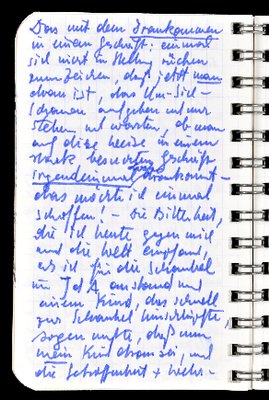 Das mit dem Drankommen
in einem Geschäft: einmal
sich nicht in Stellung rücken
zum Zeichen, daß jetzt man
dran ist, das Um-Sich-
Schauen aufgeben und nur
stehen und warten, ob man
auf diese Weise in einem
stark besuchten Geschäft
irgendeinmal drankommt –
das möchte ich einmal
schaffen! – Die Bitterkeit,
die ich heute gegen mich
und die Welt empfand,
als ich für die Schaukel
im anstand und
einem Kind, das schnell
zur Schaukel hinschlüpfte,
sagen mußte, daß nun
mein Kind dran sei, und
die Betroffenheit + Wehr-